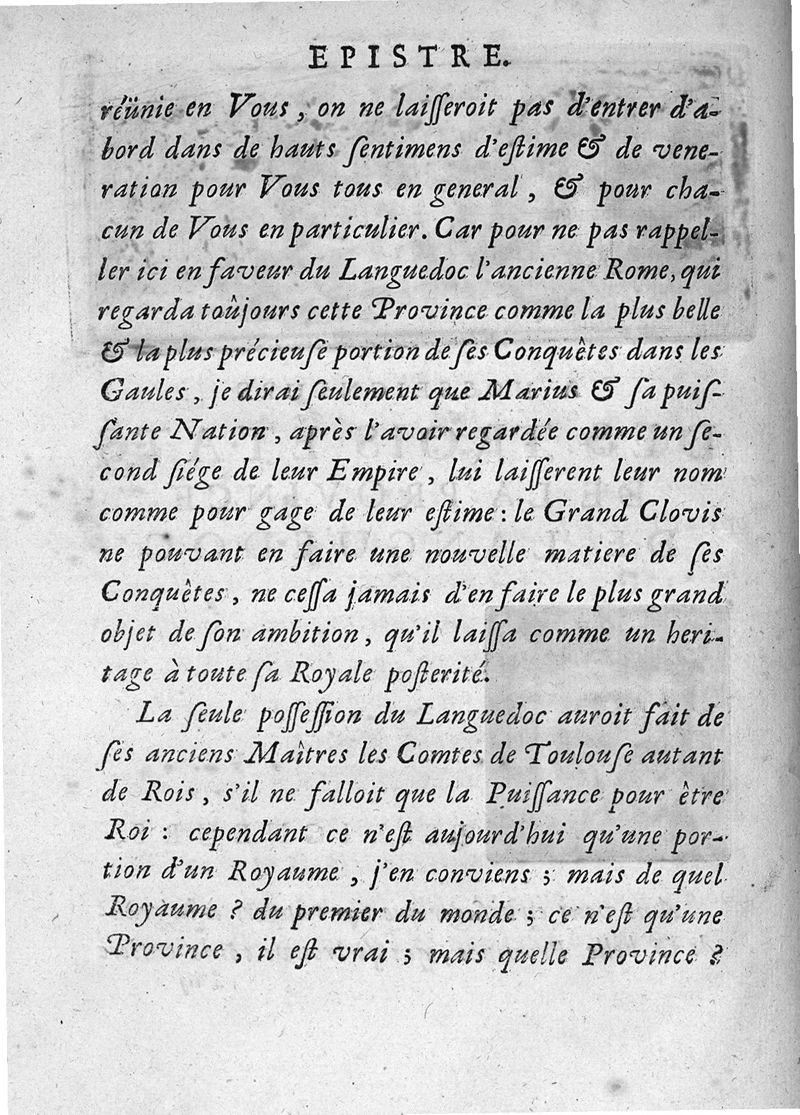 EPISTRE.
réünie en Vous, on ne laiſſeroit pas d'entrer d'a-
bord dans de hauts ſentimens d'eſtime & de vene-
ration pour Vous tous en general, & pour cha-
cun de Vous en particulier. Car pour ne pas rappel-
ler ici en faveur du Languedoc l'ancienne Rome, qui
regarda toûjours cette Province comme la plus belle
& la plus précieuſe portion de ſes Conquêtes dans les
Gaules, je dirai ſeulement que Marius & ſa puiſ-
ſante Nation, après l'avoir regardée comme un ſe-
cond ſiége de leur Empire, lui laiſſerent leur nom
comme pour gage de leur eſtime : le Grand Clovis
ne pouvant en faire une nouvelle matiere de ſes
Conquêtes, ne ceſſa jamais d'en faire le plus grand
objet de ſon ambition, qu'il laiſſa comme un heri-
tage à toute ſa Royale poſterité.
La ſeule poſſeſſion du Languedoc auroit fait de
ſes anciens Maîtres les Comtes de Toulouſe autant
de Rois, s'il ne falloit que la Puiſſance pour être
Roi : cependant ce n'eſt aujourd'hui qu'une por-
tion d'un Royaume, j'en conviens ; mais de quel
Royaume ? du premier du monde ; ce n'eſt qu'une
Province, il eſt vrai ; mais quelle Province ?